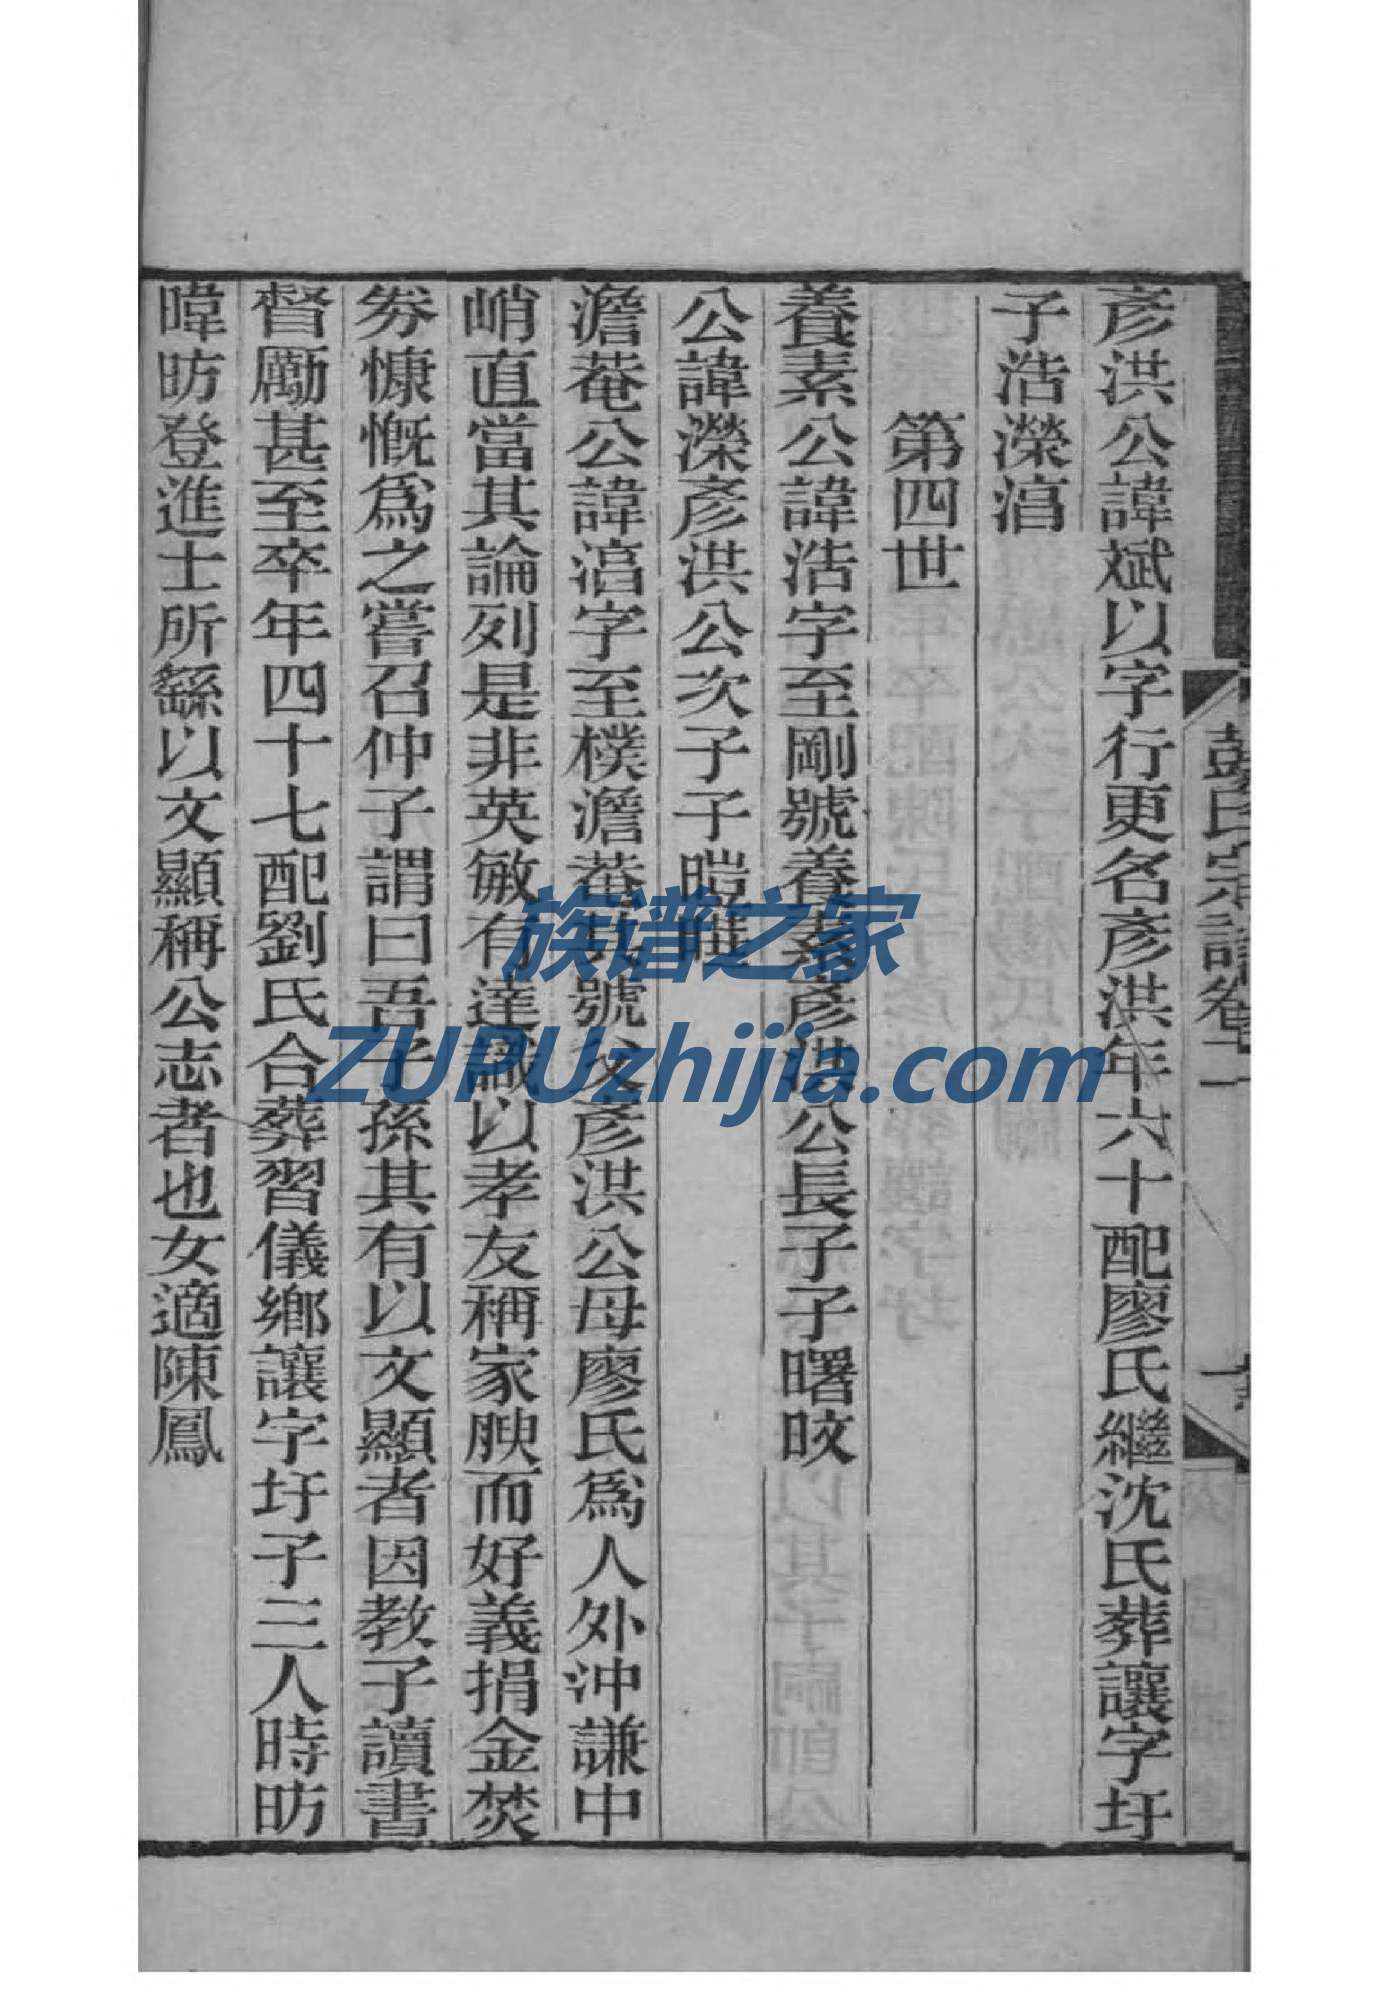 彭氏宗譜卷二
彥洪公諱斌以字行更名彥洪年六十配廖氏繼沈氏葬讓字圩
子浩濚滆
第四世
養素公諱浩字至剛號養素彥洪公長子子曙晈
公諱濚彥洪公次子子暟暀
澹菴公諱滆字至樸澹菴其號父彥洪公母廖氏爲人外沖謙中
峭直當其論列是非英敏有達識以孝友稱家腴而好義捐金焚
劵慷慨爲之嘗召仲子謂曰吾子孫其有以文顯者因教子讀書
督勵甚至卒年四十七配劉氏合葬習儀鄉讓字圩子三人時昉
暐昉登進士所繇以文顯稱公志者也女適陳鳳
族谱之家
ZUPUzhijia.com